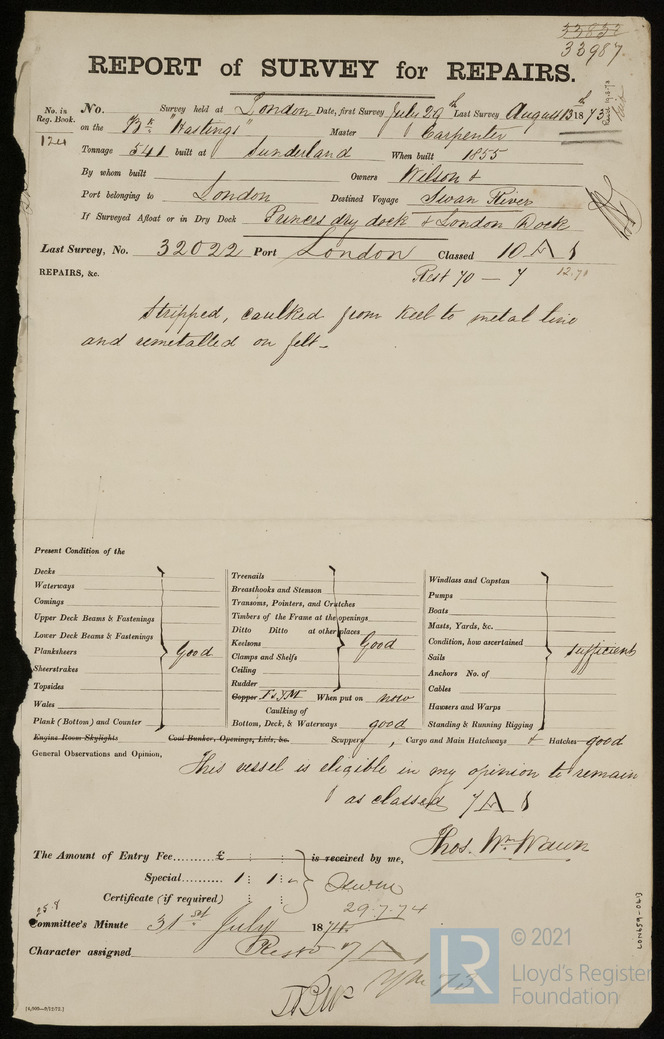 33987.
REPORT of SURVEY for REPAIRS.
No. in Reg. Book. No. Survey held at London Date, first Survey July 29th Last Survey August 13th 1873
124 on the Bk "Hastings" Master Carpenter
Tonnage 541 built at Sunderland When built 1855
By whom built Owners Wilson &
Port belonging to London Destined Voyage Swan River
If Surveyed Afloat or in Dry Dock Princes dry dock & London Dock
Last Survey, No. 32022 Port London Classed 10 A 1
REPAIRS, &c. Rest 70 — 7 12.70
Stripped, caulked from keel to metal line
and remetalled on felt -
Present Condition of the
Decks
Waterways
Comings
Upper Deck Beams & Fastenings
Lower Deck Beams & Fastenings
Planksheers Good
Sheerstrakes
Topsides
Wales
Plank (Bottom) and Counter
Treenails
Breasthooks and Stemson
Transoms, Pointers, and Crutches
Timbers of the Frame at the openings
Ditto Ditto at other places
Keelsons Good
Clamps and Shelfs
Ceiling
Rudder
Copper F & YM When put on now
Caulking of
Bottom, Deck, & Waterways good
Windlass and Capstan
Pumps
Boats
Masts, Yards, &c.
Condition, how ascertained sufficient
Sails
Anchors No. of
Cables
Hawsers and Warps
Standing & Running Rigging
Engine Room Skylights Coal Bunker, Openings, Lids, &c. Scuppers, Cargo and Main Hatchways & Hatches good
General Observations and Opinion, This vessel is eligible in my opinion to remain
as classed 7 A 1
Thos. Wm. Wawn
The Amount of Entry Fee.........£ : : is received by me,
Special......... 1 : 1 : -
Certificate (if required) : :
29.7.74
Committee's Minute 31st July 1874
Character assigned Rest 7 A 1
YM 73
[4,000—9/12/72.]
LON659-0413
LR
© 2021
Lloyd's Register
Foundation